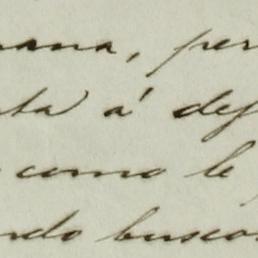 mana, per
ta á def
como le
ndo busca